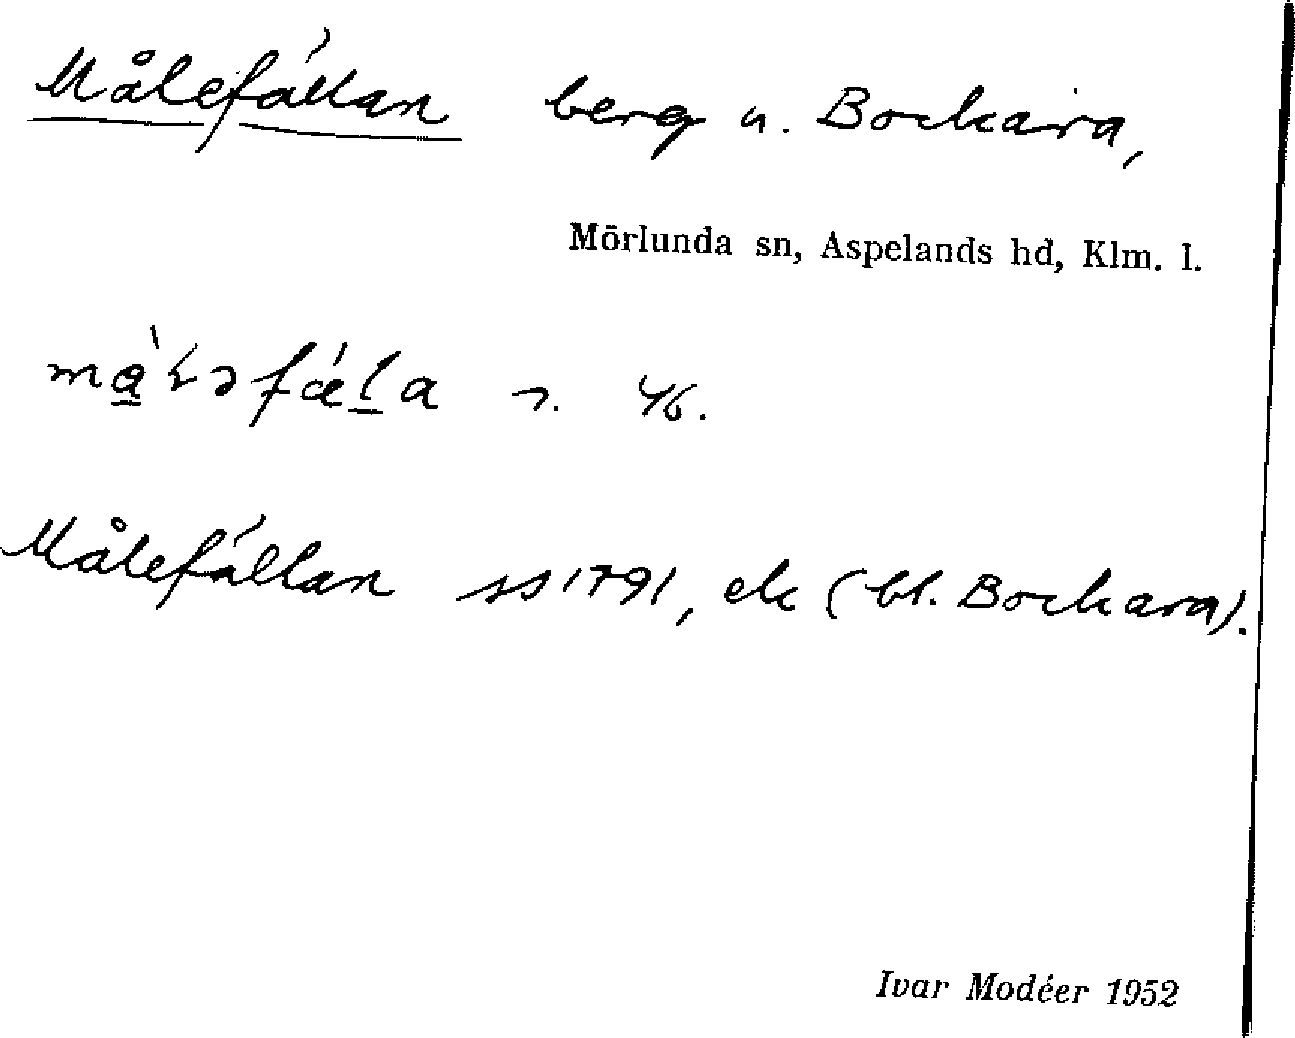 Målefällan berg u. Bockara,
Mörlunda sn, Aspelands hd, Klm. l.
46.
Målefällan ss 1791, ek (bl. Bockara).
Ivar Modéer 1952